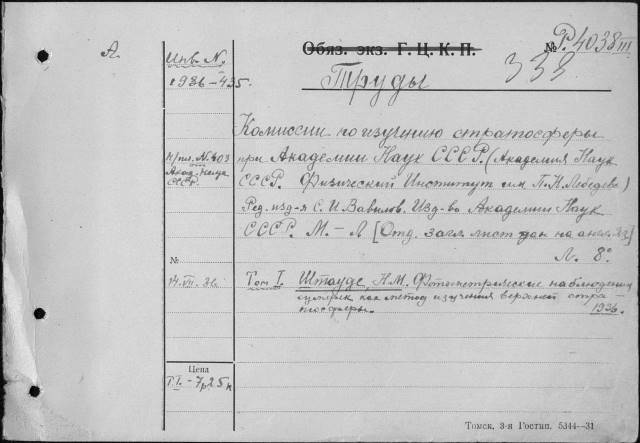 А.
Инв. N.
1936–435.
Обяз. экз. Г. Ц. К. П.
№ Р. 4038 III
333
Труды
Комиссии по изучению стратосферы
Н/пл. N. 403
от
Акад. наук
СССР.
при Академии Наук СССР. (Академия Наук
СССР. Физический Институт им. П. Н. Лебедева)
Ред. изд-я С. И. Вавилов. Изд-во Академии Наук
СССР. М. – Л. [Отд. загл. лист дан на англ. яз.]
Л. 8°
№
Том I. Штауде, Н.М. Фотометрические наблюдения
сумерек как метод изучения верхней стра-
тосферы.
1936.
Цена
Т.I. – 7р25к
Томск, 3-я Гостип. 5344—31